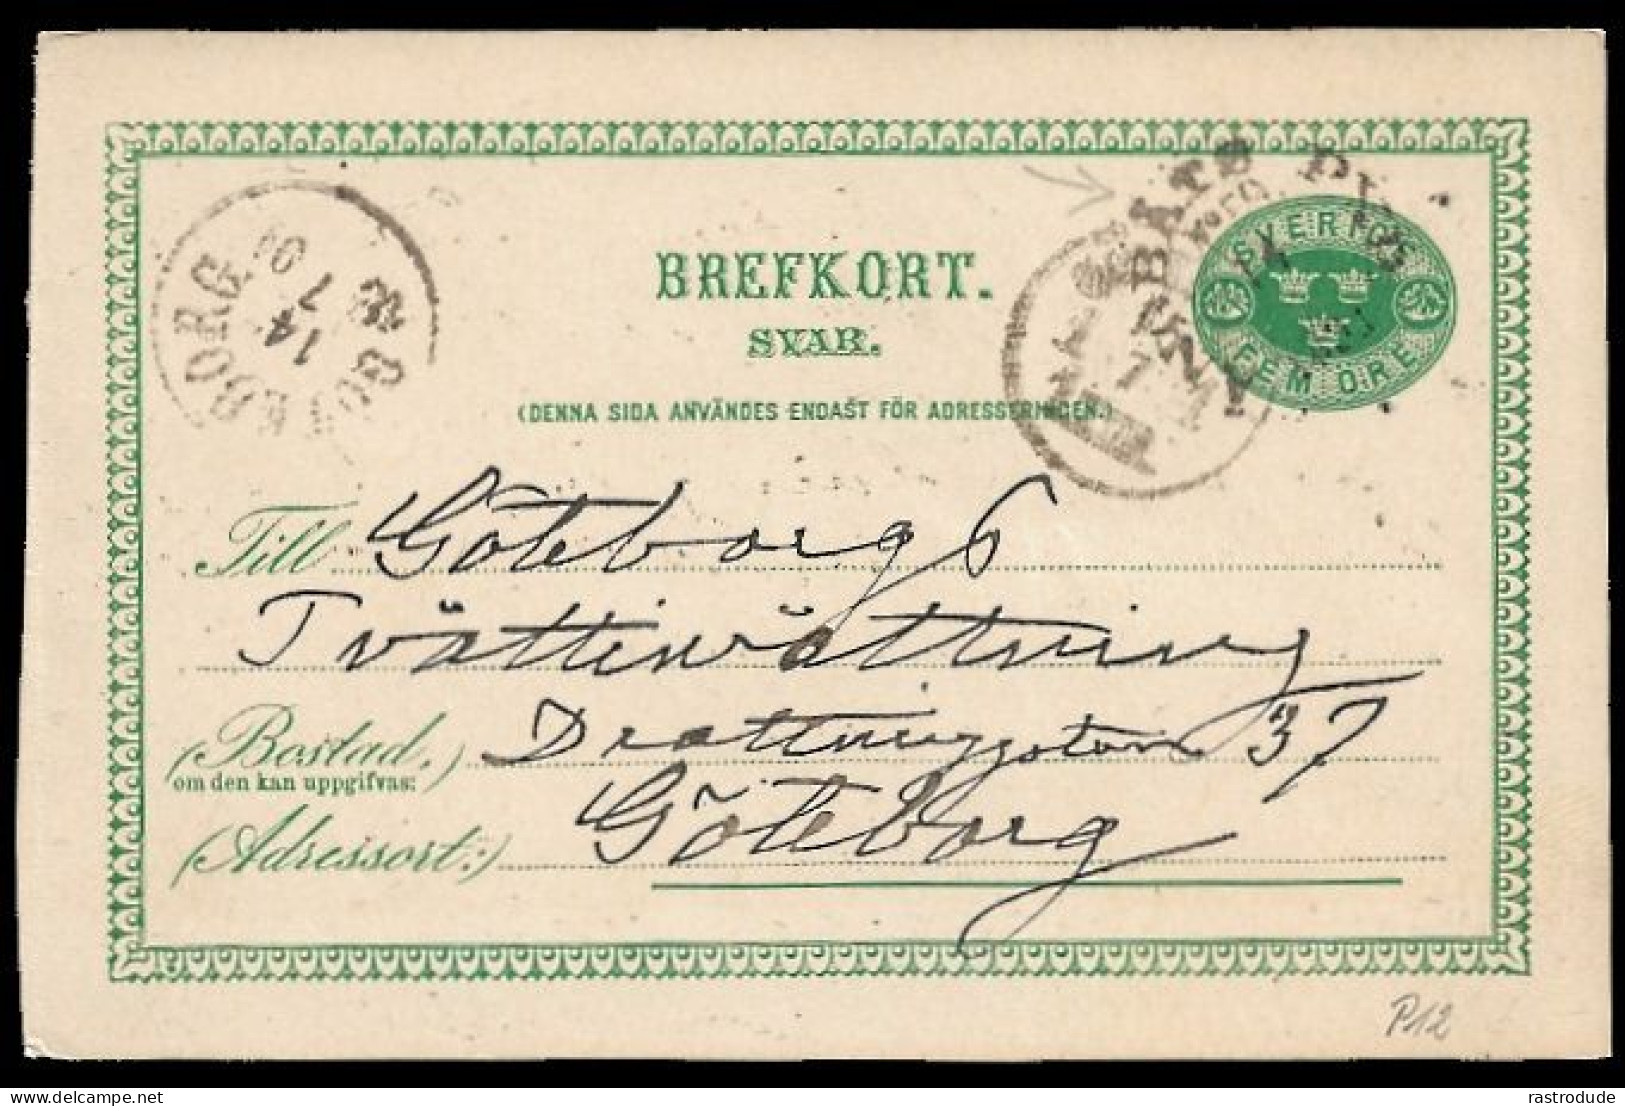 BREFKORT.
SVAR.
(DENNA SIDA ANVÄNDES ENDAST FÖR ADRESSERINGEN.)
SVERIGE
FEM ÖRE
GÖTEBORG
14
7
BÅTS PK
15
7
Till Göteborgs
Tvättinrättning
(Bostad, Drottninggatan 37
om den kan uppgifvas:
(Adressort:) Göteborg
P12
rastrodude